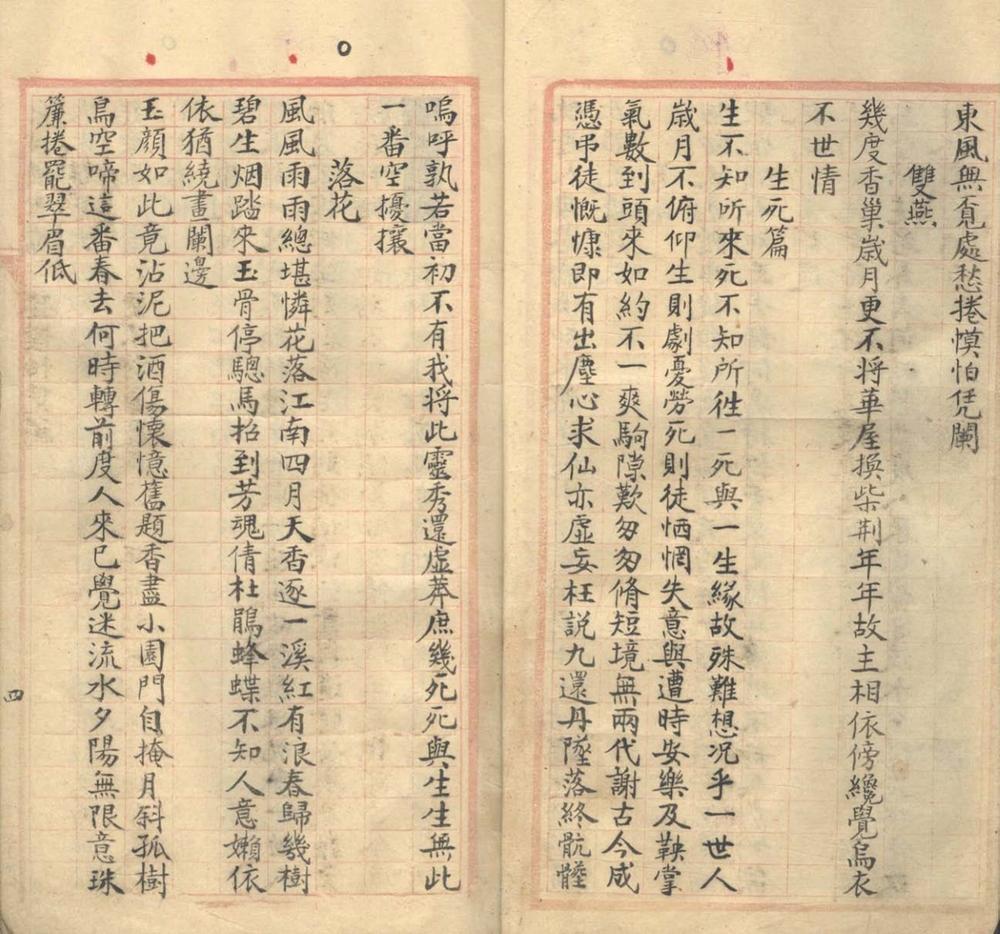 東風無覔處愁捲幙怕凭闌
雙燕
幾度香巢歳月更不將華屋換柴荆年年故主相依傍纔覺烏衣
不世情
生死篇
生不知所來死不知所徃一死與一生緣故殊難想况乎一世人
歳月不俯仰生則劇憂勞死則徒恓惘失意與遭時安樂及鞅掌
氣數到頭來如約不一爽駒隙歎匆匆脩短境無兩代謝古今咸
憑弔徒慨慷即有出塵心求仙亦虛妄枉説九還丹墜落終骯髒
嗚呼孰若當初不有我將此靈秀還虛莽庶幾死死與生生無此
一番空擾攘
落花
風風雨雨總堪憐花落江南四月天香逐一溪紅有浪春歸幾樹
碧生烟踏來玉骨停驄馬招到芳魂倩杜鵑蜂蝶不知人意嬾依
依猶繞畫闌邊
玉顔如此竟沾泥把酒傷懷憶舊題香盡小園門自掩月斜孤樹
鳥空啼這番春去何時轉前度人來已覺迷流水夕陽無限意珠
簾捲罷翠眉低
四